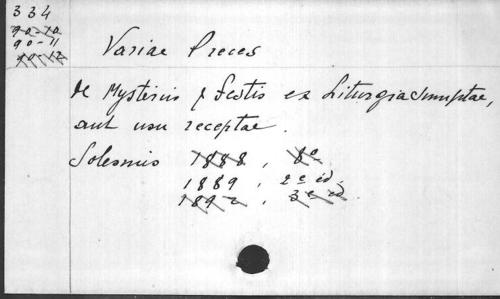 334
90-10
90-11
90-12
Variae Preces
de Mysteriis & festis ex Liturgia sumptae,
aut usu receptae.
Solesmis 1888, 8°
1889, 2e id.
1892, 3e id